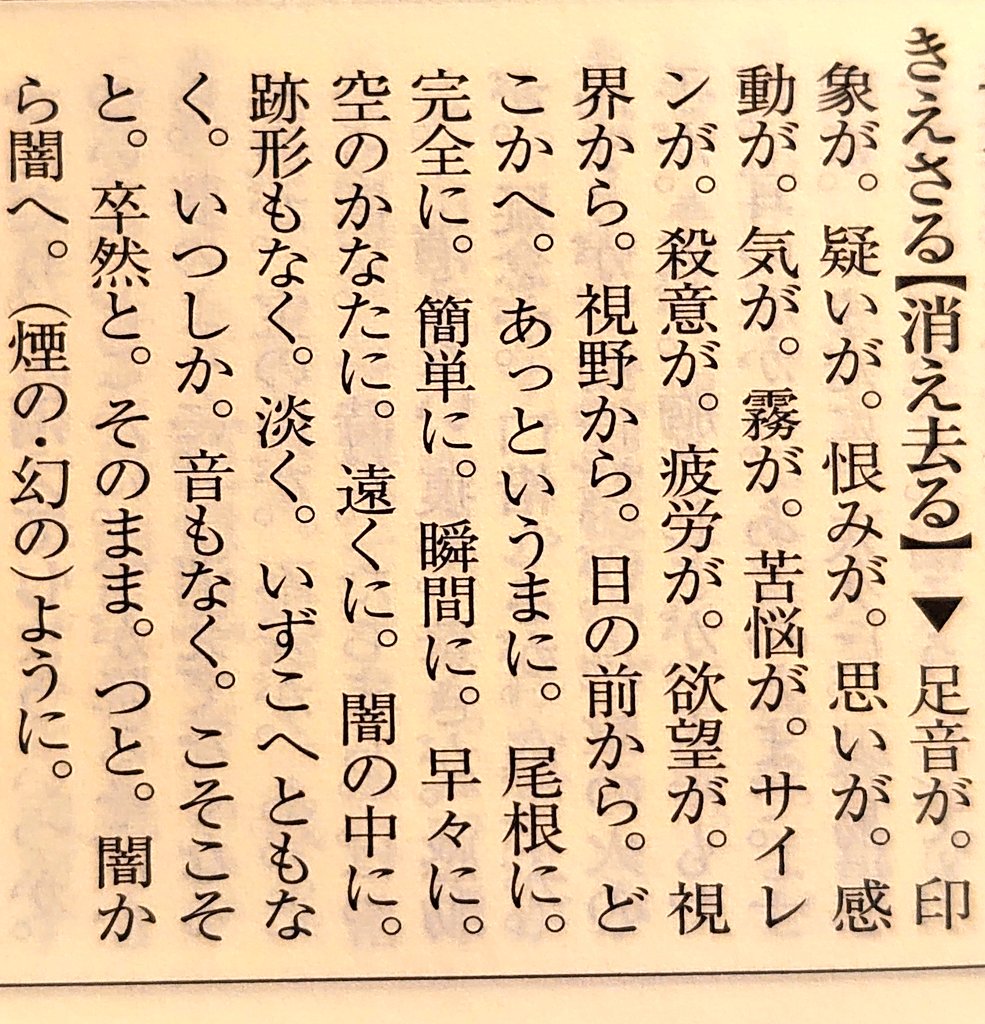 きえさる【消え去る】▼足音が。印
象が。疑いが。恨みが。思いが。感
動が。気が。霧が。苦悩が。サイレ
ンが。殺意が。疲労が。欲望が。視
界から。視野から。目の前から。ど
こかへ。あっというまに。尾根に。
完全に。簡単に。瞬間に。早々に。
空のかなたに。遠くに。闇の中に。
跡形もなく。淡く。いずこへともな
く。いつしか。音もなく。こそこそ
と。卒然と。そのまま。つと。闇か
ら闇へ。(煙の・幻の)ように。